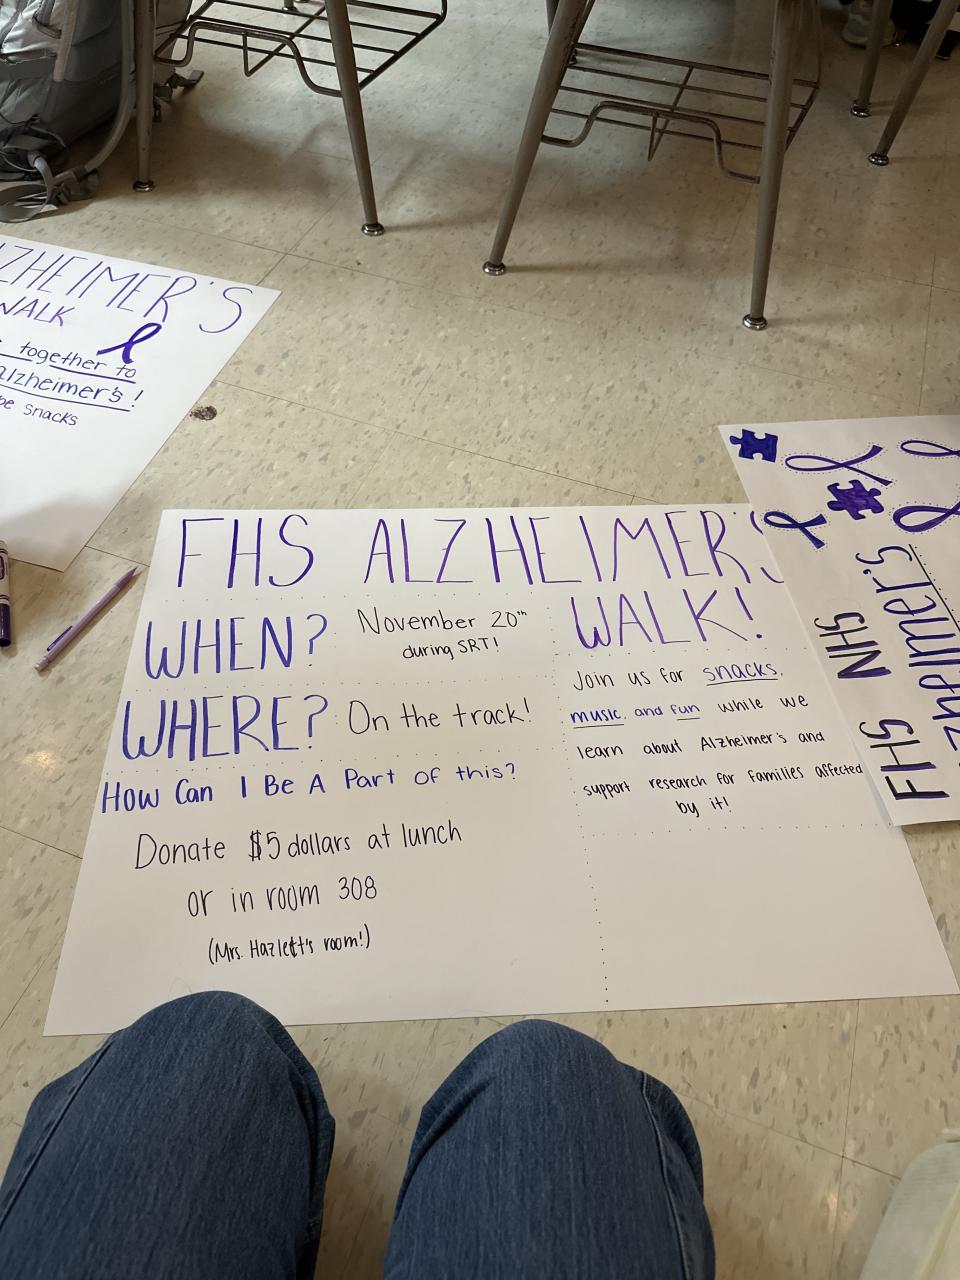 ZHEIMER'S
WALK
together to
alzheimer's!
snacks
FHS ALZHEIMER'S
WALK!
WHEN? November 20th
during SRT!
WHERE? On the track!
How Can I Be A Part of this?
Donate $5 dollars at lunch
or in room 308
(Mrs. Hazlett's room!)
Join us for snacks,
music, and fun while we
learn about Alzheimer's and
support research for families affected
by it!
FHS NHS
Alzheimer's